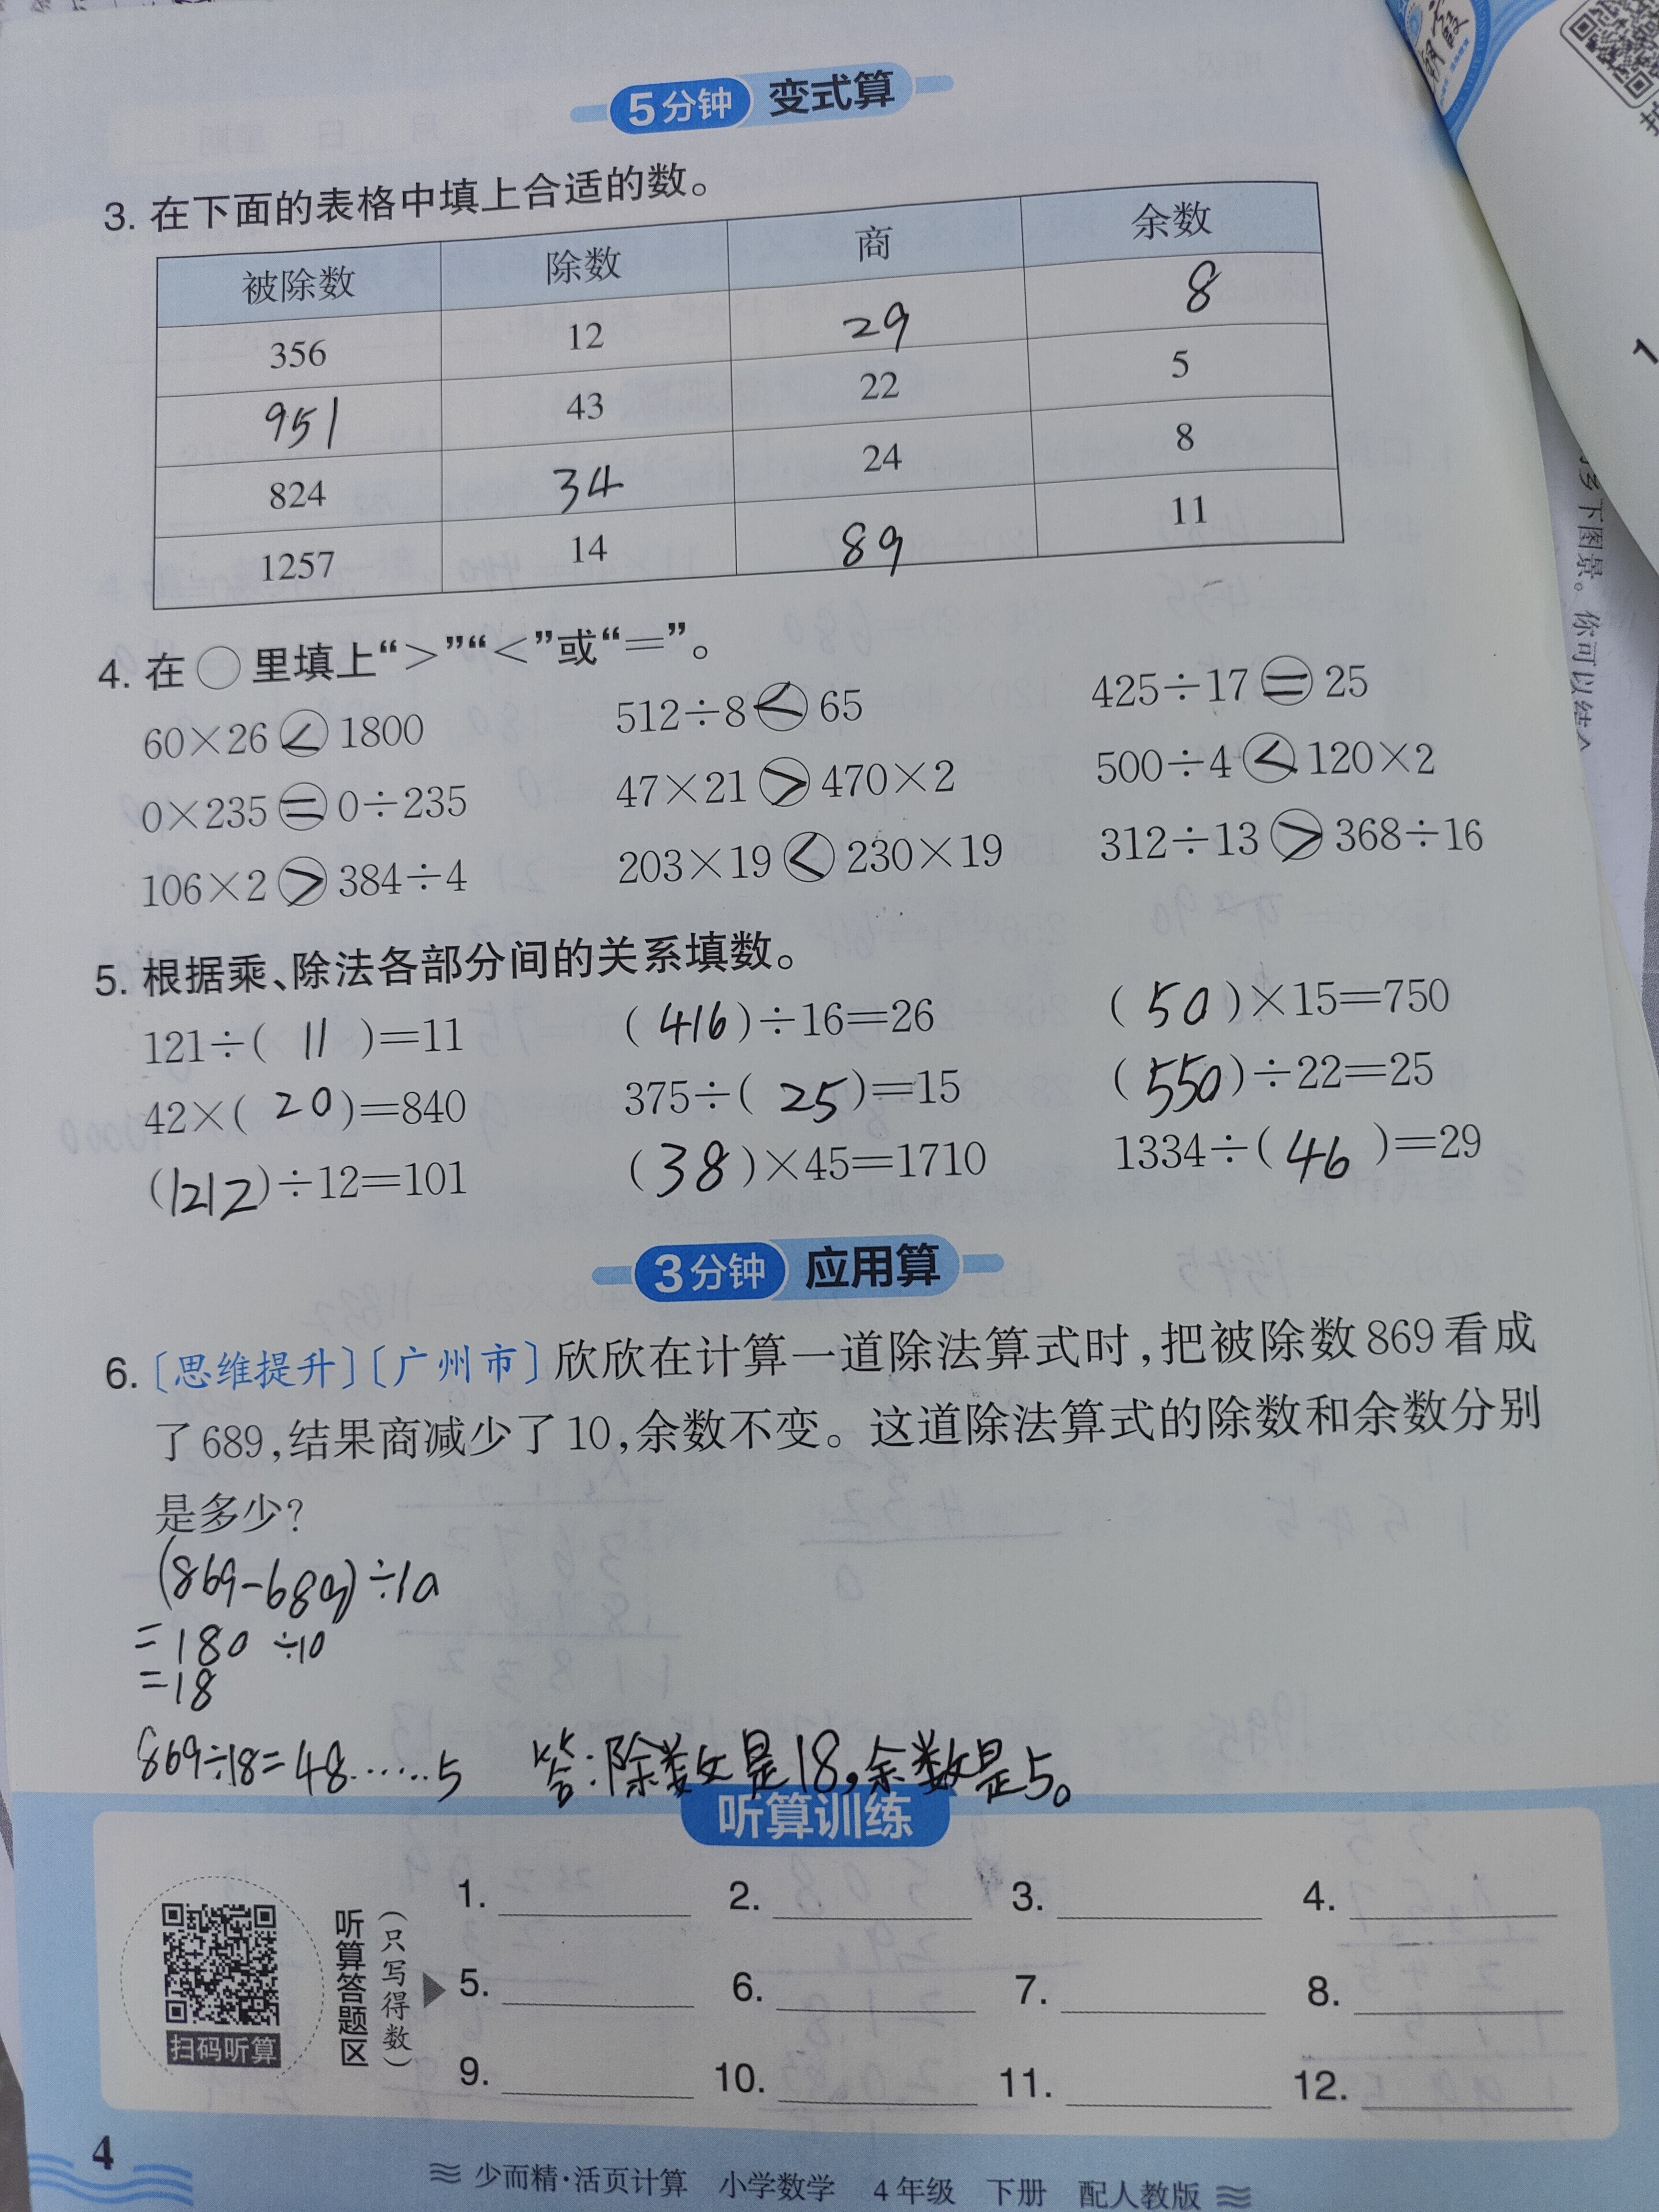 5分钟 变式算
3. 在下面的表格中填上合适的数。
被除数 除数 商 余数
356 12 29 8
951 43 22 5
824 34 24 8
1257 14 89 11
4. 在○里填上“>”“<”或“=”。
60×26 < 1800 512÷8 < 65 425÷17 = 25
0×235 = 0÷235 47×21 > 470×2 500÷4 < 120×2
106×2 > 384÷4 203×19 < 230×19 312÷13 > 368÷16
5. 根据乘、除法各部分间的关系填数。
121÷( 11 )=11 (416)÷16=26 (50)×15=750
42×( 20 )=840 375÷( 25 )=15 (550)÷22=25
(1212)÷12=101 (38)×45=1710 1334÷( 46 )=29
3分钟 应用算
6.[思维提升][广州市]欣欣在计算一道除法算式时,把被除数869看成
了689,结果商减少了10,余数不变。这道除法算式的除数和余数分别
是多少?
(869-689)÷10
=180÷10
=18
869÷18=48……5 答:除数是18,余数是5。
听算训练
扫码听算
听算答题区
(只写得数)
1. 2. 3. 4.
5. 6. 7. 8.
9. 10. 11. 12.
4
少而精·活页计算 小学数学 4年级 下册 配人教版
下图景。你可以结
1